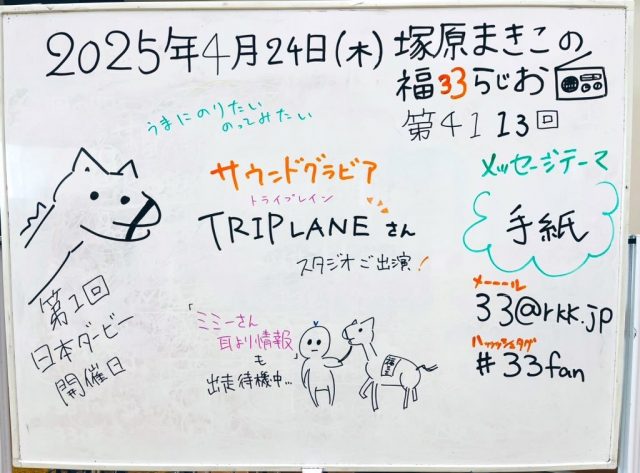 2025年4月24日(木) 塚原まきこの
福33らじお
第4113回
うまにのりたい
のってみたい
サウンドグラビア
トライプレイン
TRIPLANEさん
スタジオご出演!
メッセージテーマ
手紙
メーーール
33@rkk.jp
ハッッシュタグ
#33fan
第1回
日本ダービー
開催日
「ミミーさん
耳より情報」
も
出走待機中…